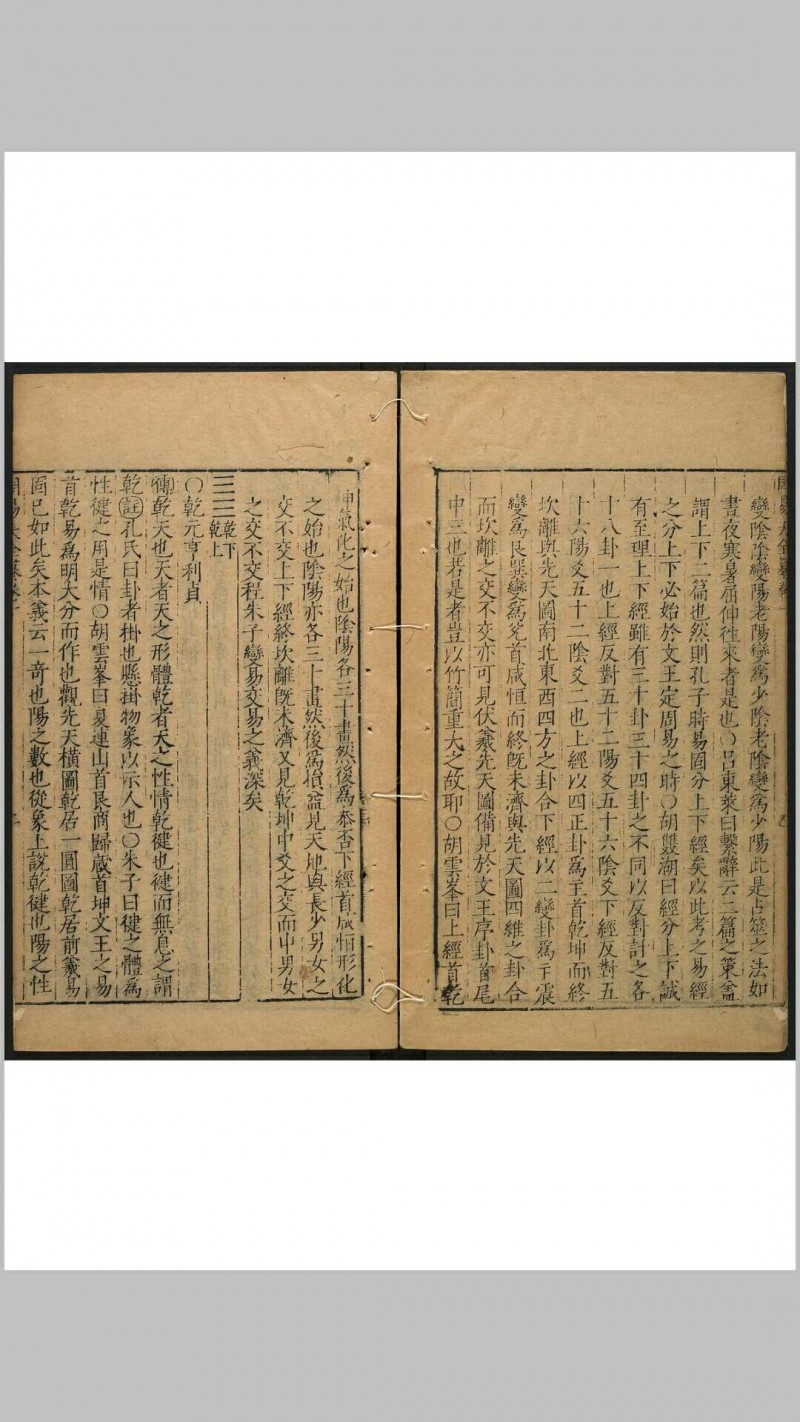 變陰陰變陽老陽變爲少陰老陰變爲少陽此是占筮之法如
晝夜寒暑屈伸徃來者是也○呂東萊曰繫辭云二篇之策盖
謂上下二篇也然則孔子時易固分上下經矣以此考之易經
之分上下必始於文王定周易之時○胡雙湖曰經分上下誠
有至理上下經雖有三十卦三十四卦之不同以反對計之各
十八卦一也上經反對五十二陽爻五十六陰爻下經反對五
十六陽爻五十二陰爻二也上經以四正卦爲主首乾坤而終
坎離與先天圖南北東西四方之卦合下經以二變卦爲主震
變爲艮巽變爲兊首咸恒而終旣未濟與先天圖四維之卦合
而坎離之交不交亦可見伏羲先天圖備見於文王序卦首尾
中三也若是者豈以竹簡重大之故耶○胡雲峯曰上經首乾
坤氣化之始也陰陽各三十畫然後爲泰否下經首咸恒形化
之始也陰陽亦各三十畫然後爲損益見天地與長少男女之
交不交上下經終坎離旣未濟又見乾坤中爻之交而中男女
之交不交程朱子變易交易之義深矣
乾下
乾上
○乾元亨利貞
傳乾天也天者天之形體乾者天之性情乾健也健而無息之謂
乾註孔氏曰卦者掛也懸掛物象以示人也○朱子曰健之體爲
性健之用是情○胡雲峯曰夏連山首艮商歸藏首坤文王之易
首乾易爲明大分而作也觀先天橫圖乾居一圓圖乾居前羲易
固已如此矣本義云一奇也陽之數也從象上說乾健也陽之性